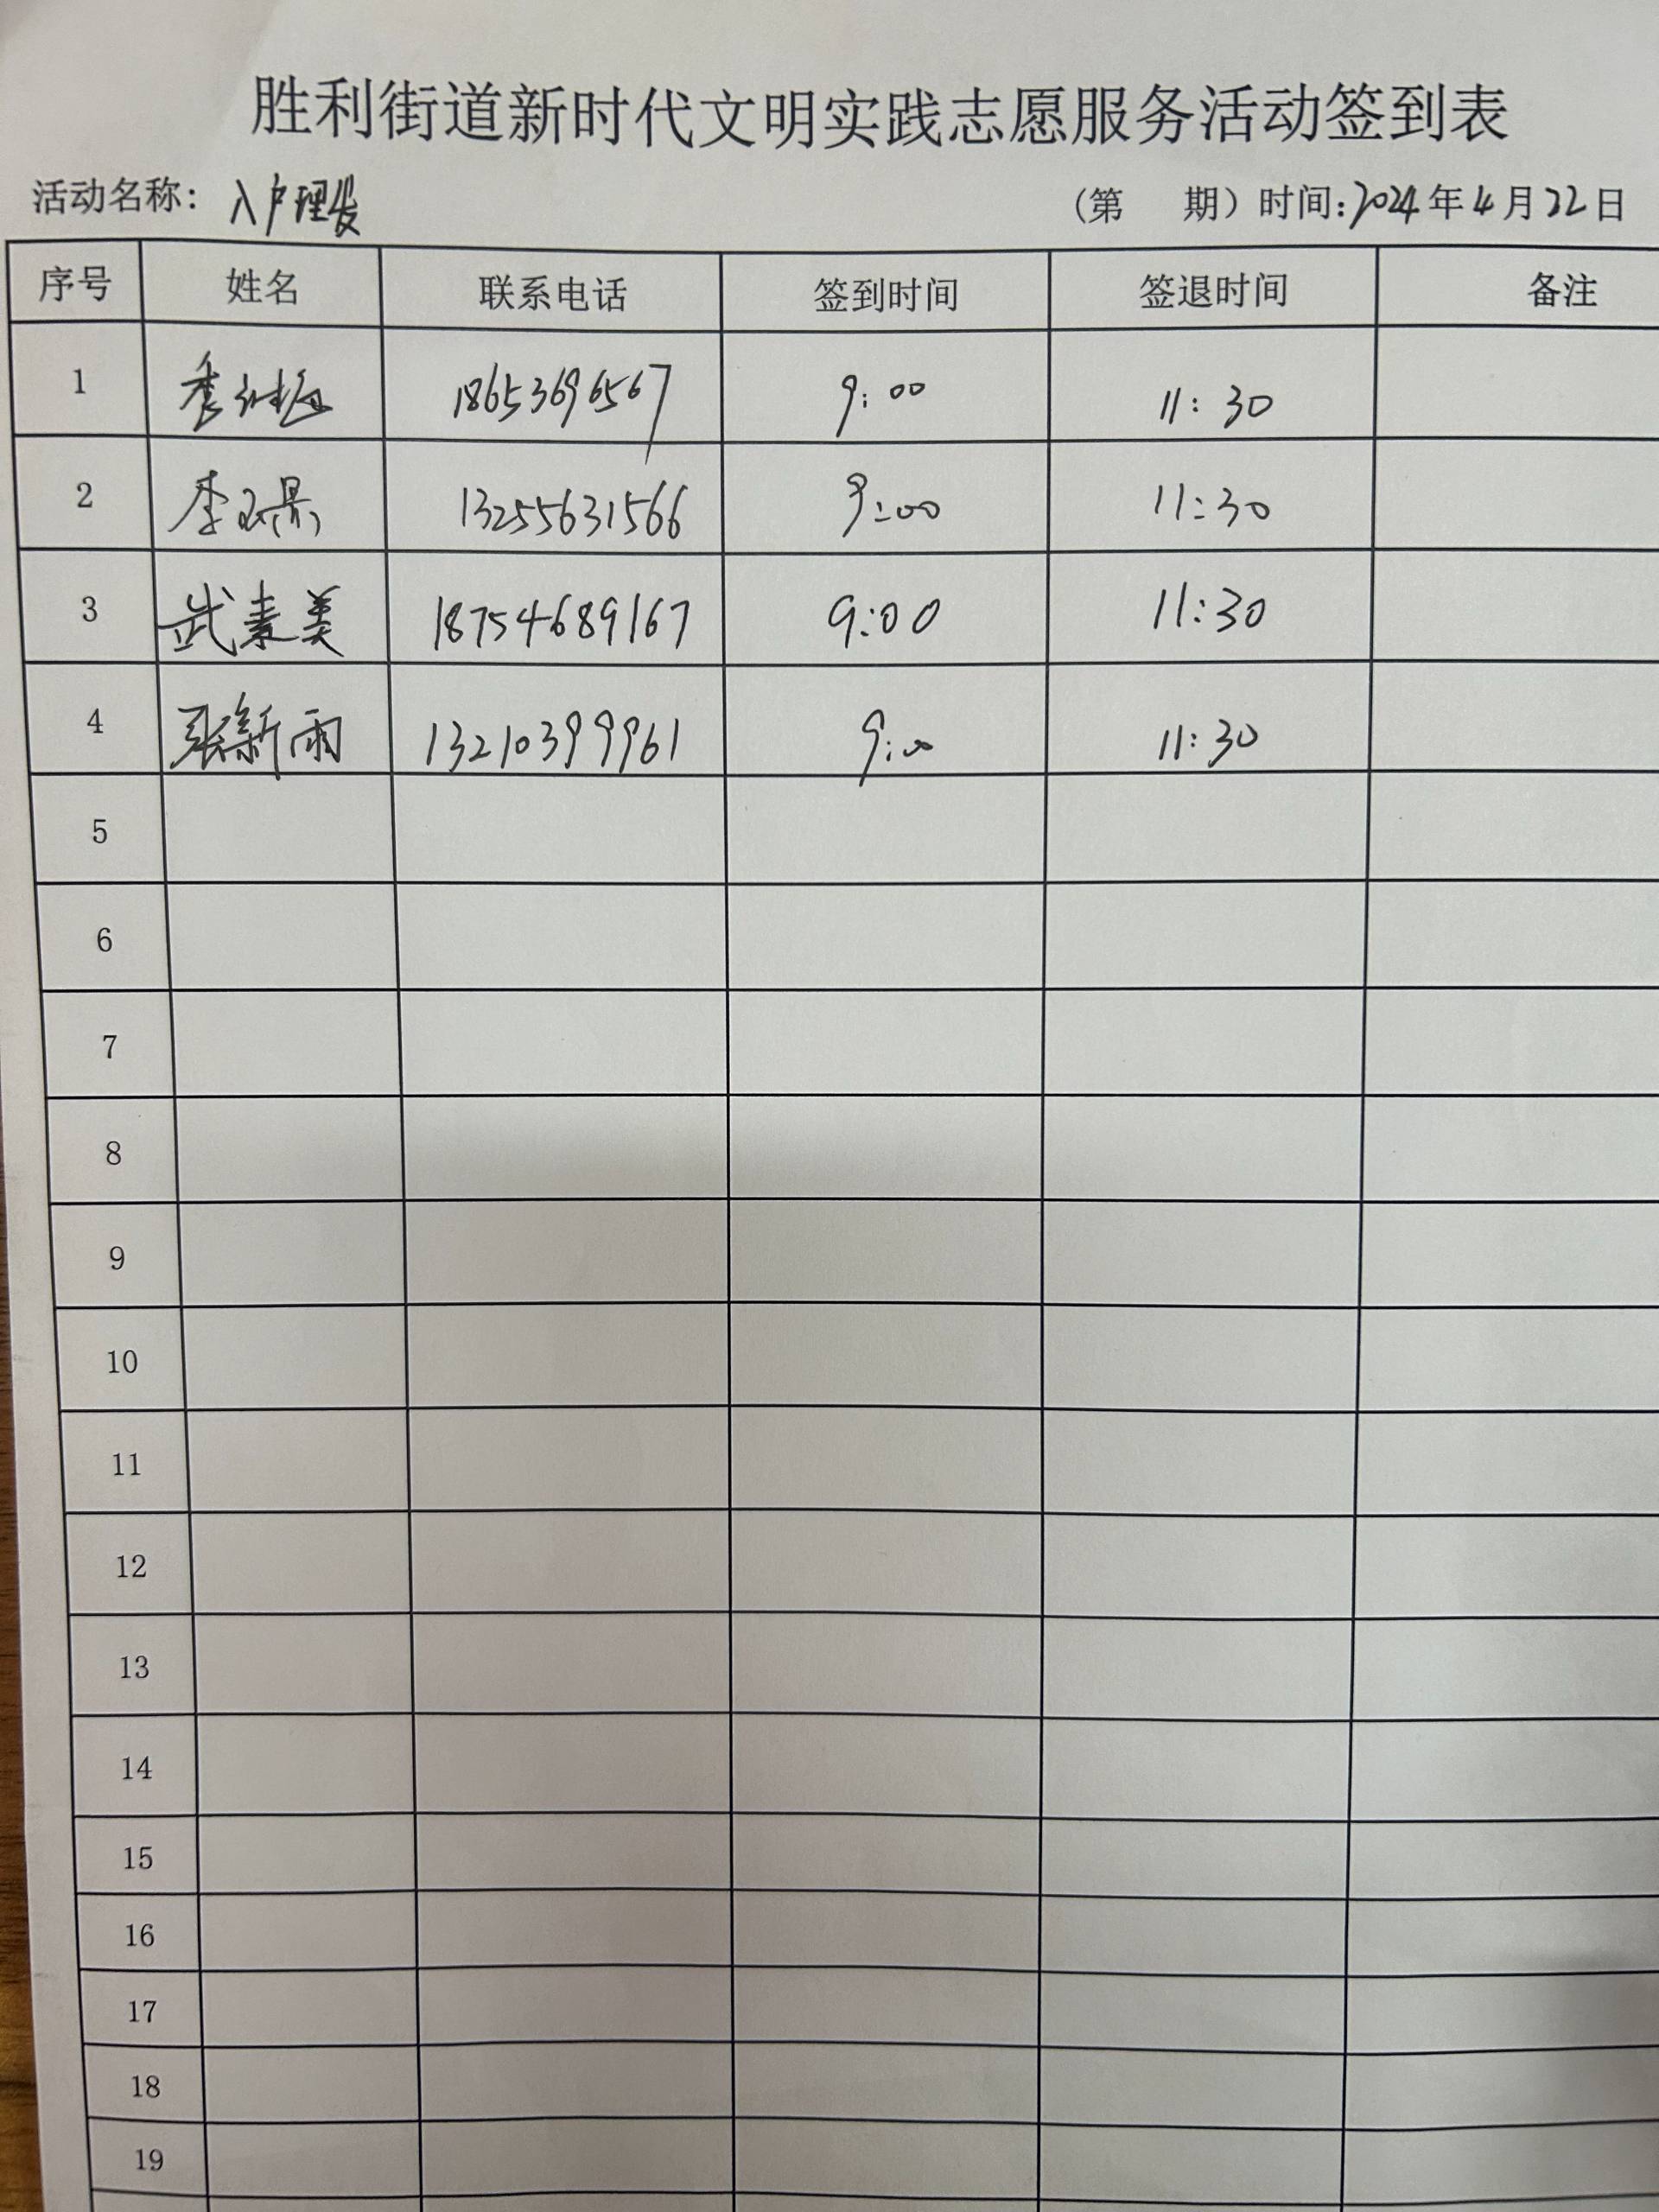 胜利街道新时代文明实践志愿服务活动签到表
活动名称: 入户理发 (第 期) 时间:2024年4月22日
序号 姓名 联系电话 签到时间 签退时间 备注
1 18653696567 9:00 11:30
2 李 13255631566 9:00 11:30
3 武素美 18754689167 9:00 11:30
4 张新雨 13210399961 9:00 11:30
5
6
7
8
9
10
11
12
13
14
15
16
17
18
19